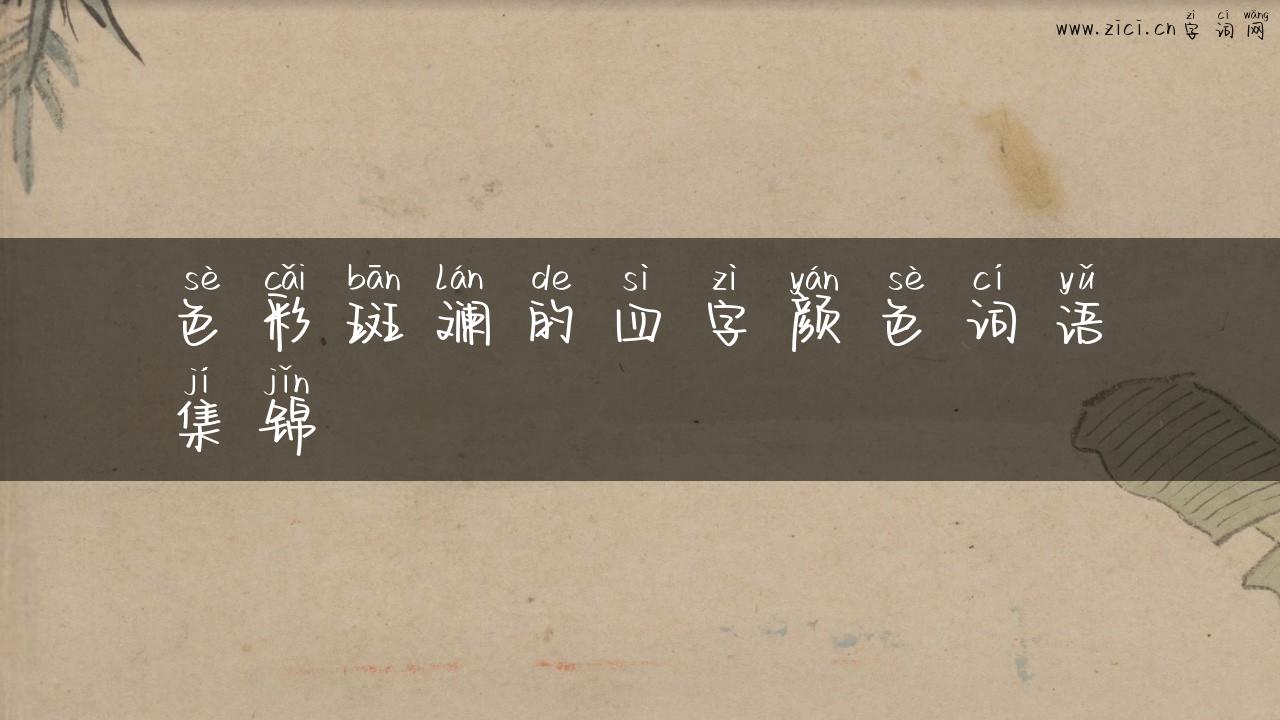 zì cí wǎng
www.zici.cn 字词网
sè cǎi bān lán de sì zì yán sè cí yǔ
色彩斑斓的四字颜色词语
jí jǐn
集锦